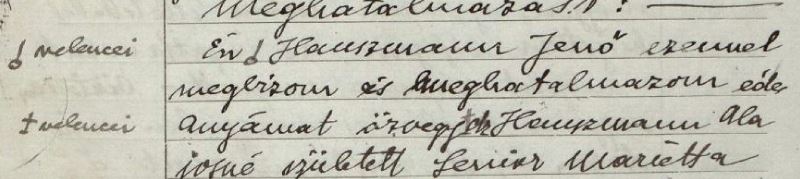 Meghatalmazást:
♂ velencei Én ♂ Hauszmann Jenő ezennel
megbizom és meghatalmazom édes
† velencei anyámat özvegy † Hauszmann Ala
josné született Senior Marietta